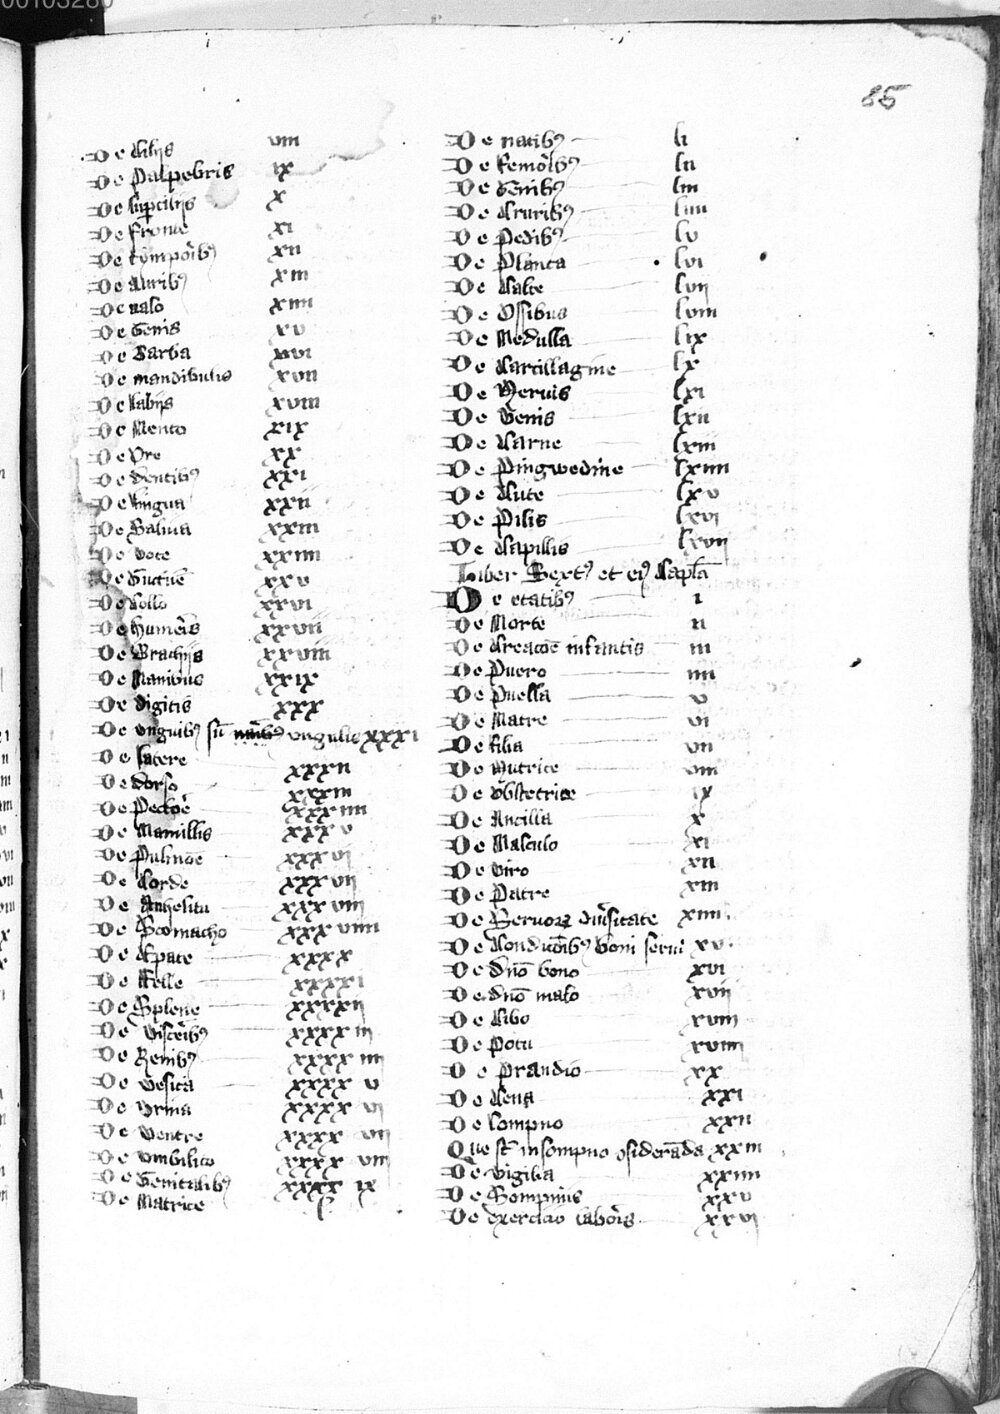 00103280
85
De Ciliis viii
De Palpebris ix
De supciliis x
De fronte xi
De tymporibꝰ xii
De Auribꝰ xiii
De naso xiiii
De Genis xv
De Barba xvi
De mandibulis xvii
De labiis xviii
De Mento xix
De Ore xx
De dentibꝰ xxi
De lingua xxii
De Saliua xxiii
De voce xxiiii
De Gutture xxv
De Collo xxvi
De humeris xxvii
De Brachiis xxviii
De Manibus xxix
De digitis xxx
De vnguibꝰ siue vngulis xxxi
De latere xxxii
De dorso xxxiii
De Pectore xxxiiii
De Mamillis xxxv
De Pulmone xxxvi
De Corde xxxvii
De Anhelitu xxxviii
De Stomacho xxxviiii
De Epate xxxx
De Felle xxxxi
De Splene xxxxii
De visceribꝰ xxxxiii
De Renibꝰ xxxxiiii
De vesica xxxxv
De vrina xxxxvi
De ventre xxxxvii
De vmbilico xxxxviii
De Genitalibꝰ xxxxix
De Matrice l
De natibꝰ li
De femoribꝰ lii
De Genibꝰ liii
De Cruribꝰ liiii
De Pedibꝰ lv
De Planta lvi
De Calce lvii
De Ossibus lviii
De Medulla lix
De Cartillagine lx
De Neruis lxi
De Venis lxii
De Carne lxiii
De Pingwedine lxiiii
De Cute lxv
De Pilis lxvi
De Capillis lxvii
Liber Sextꝰ et eiꝰ Capla
De etatibꝰ i
De Morte ii
De Creacoe infantis iii
De Puero iiii
De Puella v
De Matre vi
De filia vii
De Nutrice viii
De Obstetrice ix
De Ancilla x
De Masculo xi
De viro xii
De Patre xiii
De Seruoꝝ diuersitate xiiii
De Condicōibꝰ boni serui xv
De dno bono xvi
De dno malo xvii
De Cibo xviii
De Potu xviiii
De prandio xx
De Cena xxi
De sompno xxii
Que st in sompno ꝯsideranda xxiii
De vigilia xxiiii
De Sompniis xxv
De exercicio laboris xxvi